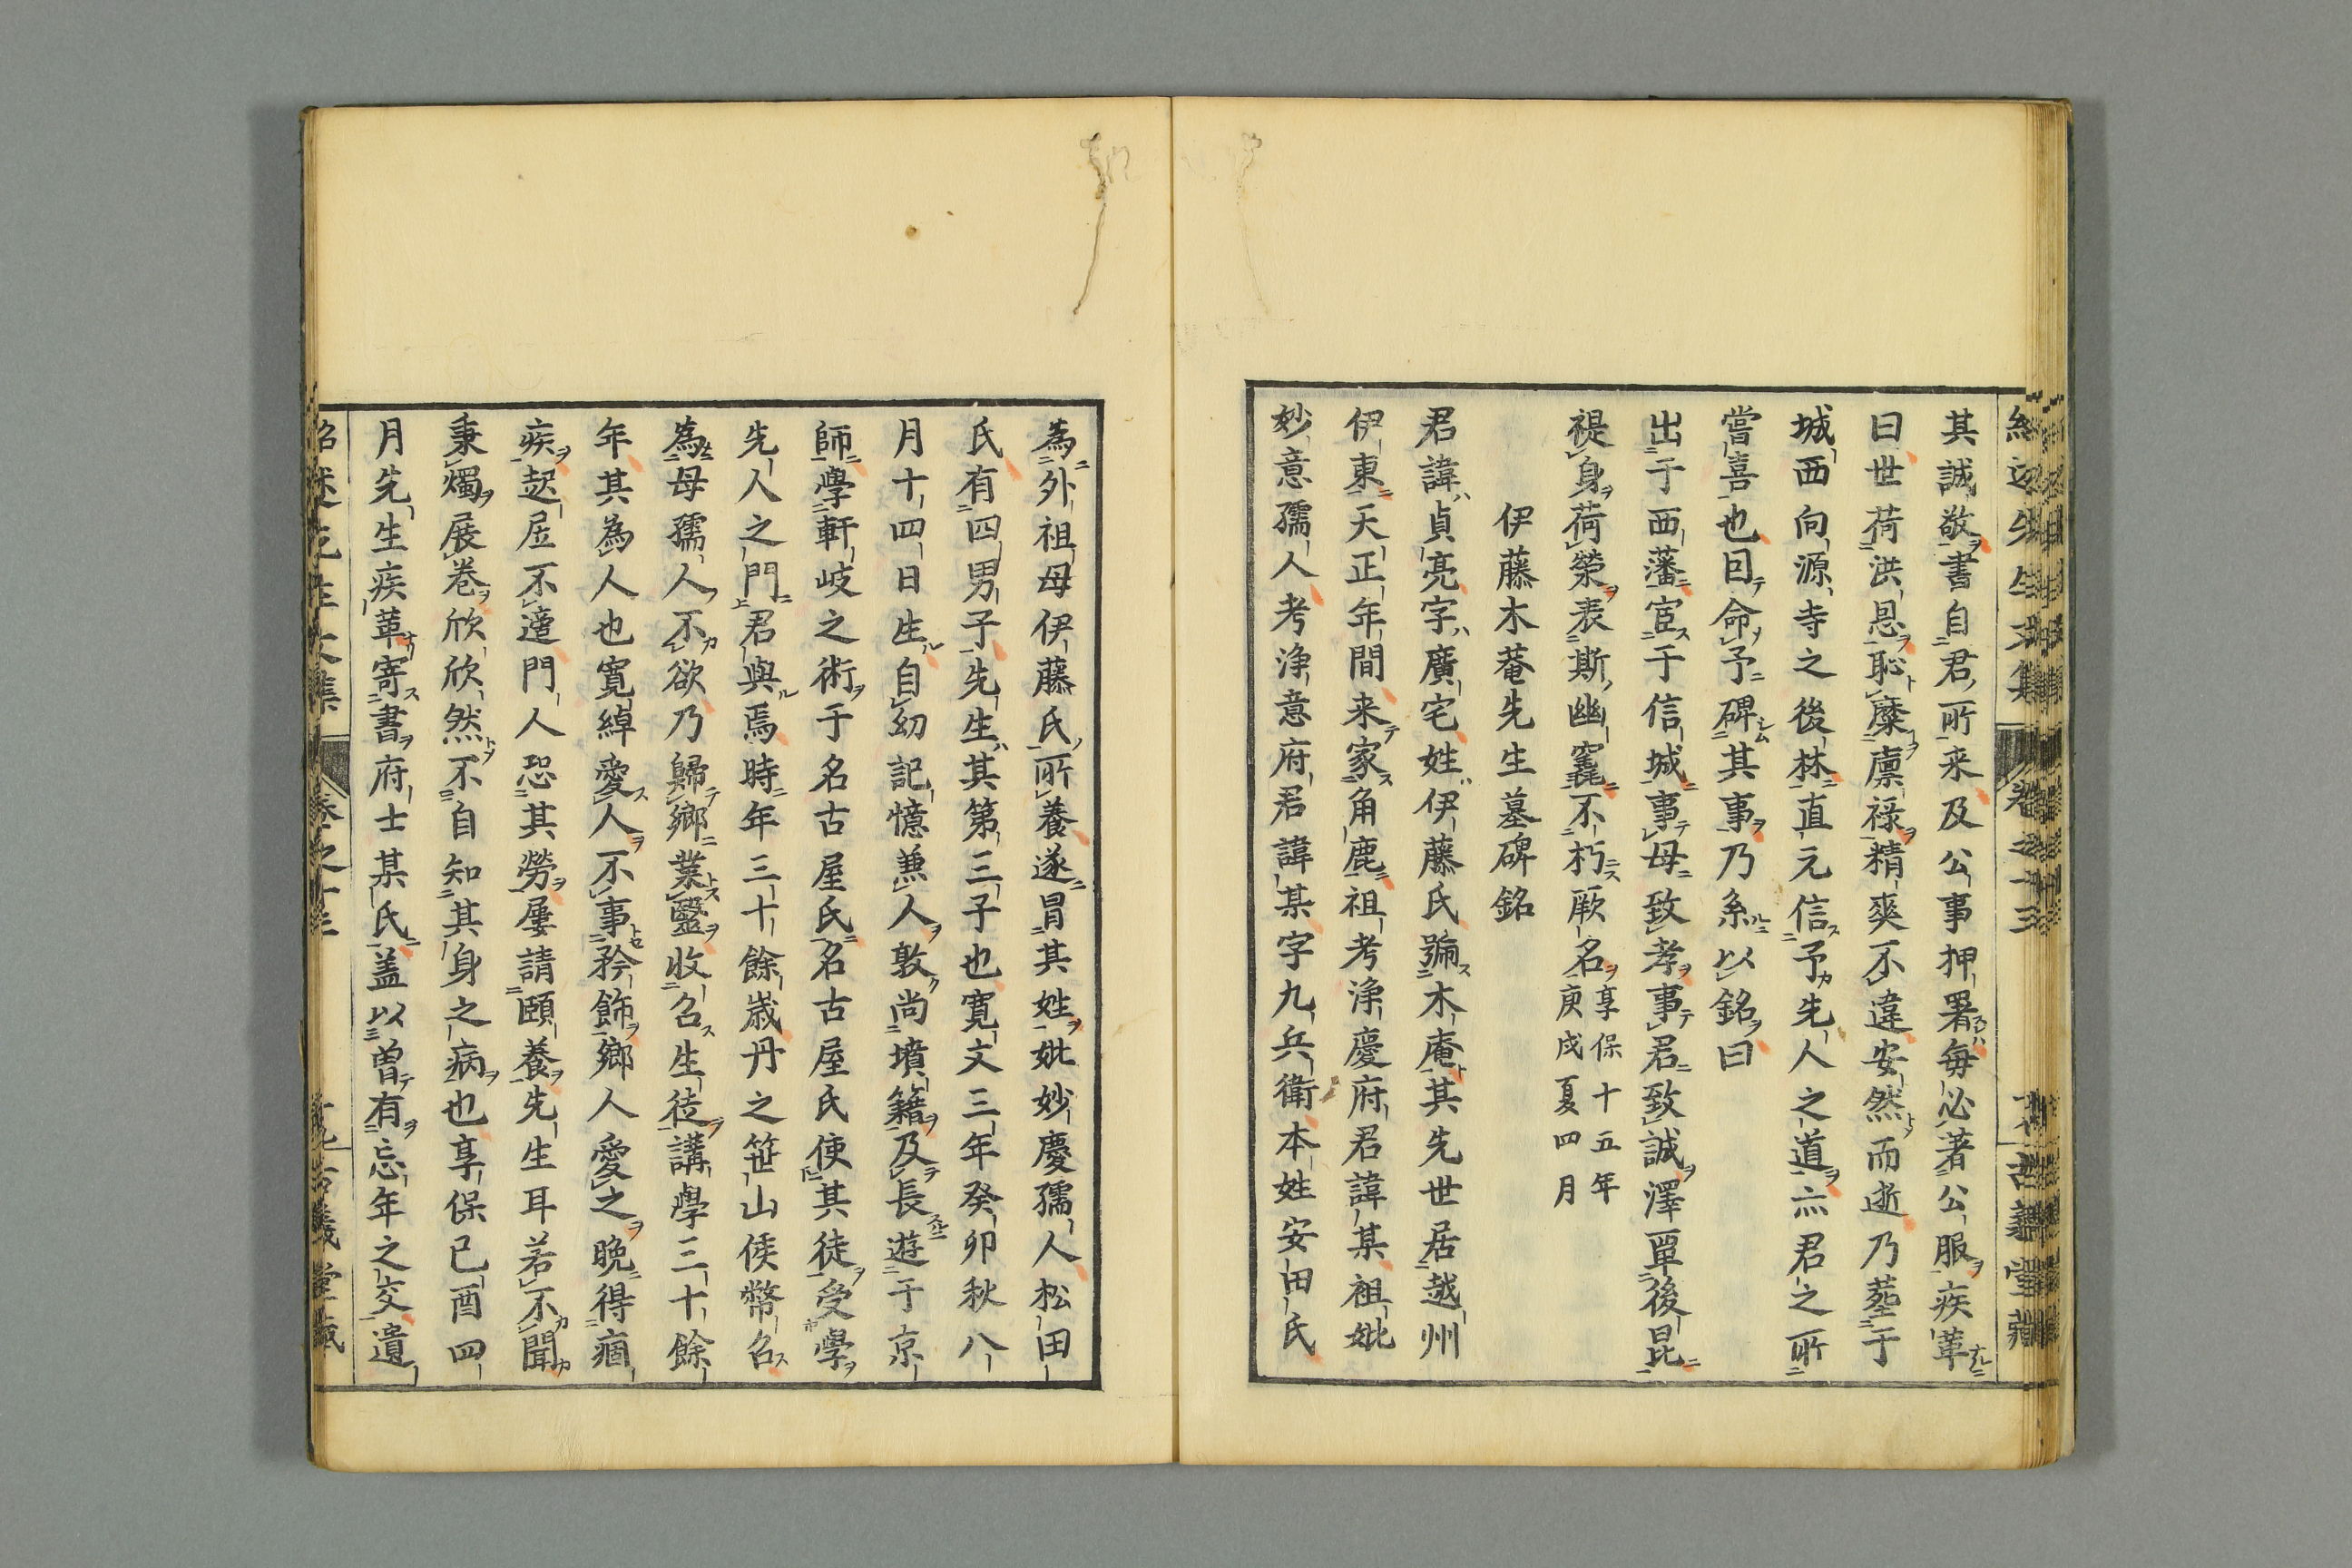 其誠敬書自君所来及公事押署毎必著公服疾革
曰世荷洪恩恥糜廩禄精爽不違安然而逝乃塟于
城西向源寺之後林直元信予先人之道亦君之所
嘗喜也囙命予碑其事乃系以銘曰
出于西藩宦于信城事母致孝事君致誠澤覃後昆
禔身荷榮表斯幽窀不朽厥名享保十五年
庚戌夏四月
伊藤木菴先生墓碑銘
君諱貞亮字廣宅姓伊藤氏号木庵其先世居越州
伊東天正年間来家角鹿祖考浄慶府君諱某祖妣
妙意孺人考浄意府君諱某字九兵衛本姓安田氏
為外祖母伊藤氏所養遂冐其姓妣妙慶孺人松田
氏有四男子先生其第三子也寛文三年癸卯秋八
月十四日生自幼記憶兼人敦尚墳籍及長遊于京
師學軒岐之術于名古屋氏名古屋氏使其徒受學
先人之門君與焉時年三十餘歳丹之笹山侯幣召
為母孺人不欲乃歸郷業醫收召生徒講學三十餘
年其為人也寛綽愛人不事矜飾郷人愛之晩得痼
疾起居不適門人恐其勞屢請頤養先生耳若不聞
秉燭展巻欣欣然不自知其身之病也享保己酉四
月先生疾革寄書府士某氏盖以曽有忘年之交遺
紹述先生文集 卷之十三 古義堂藏